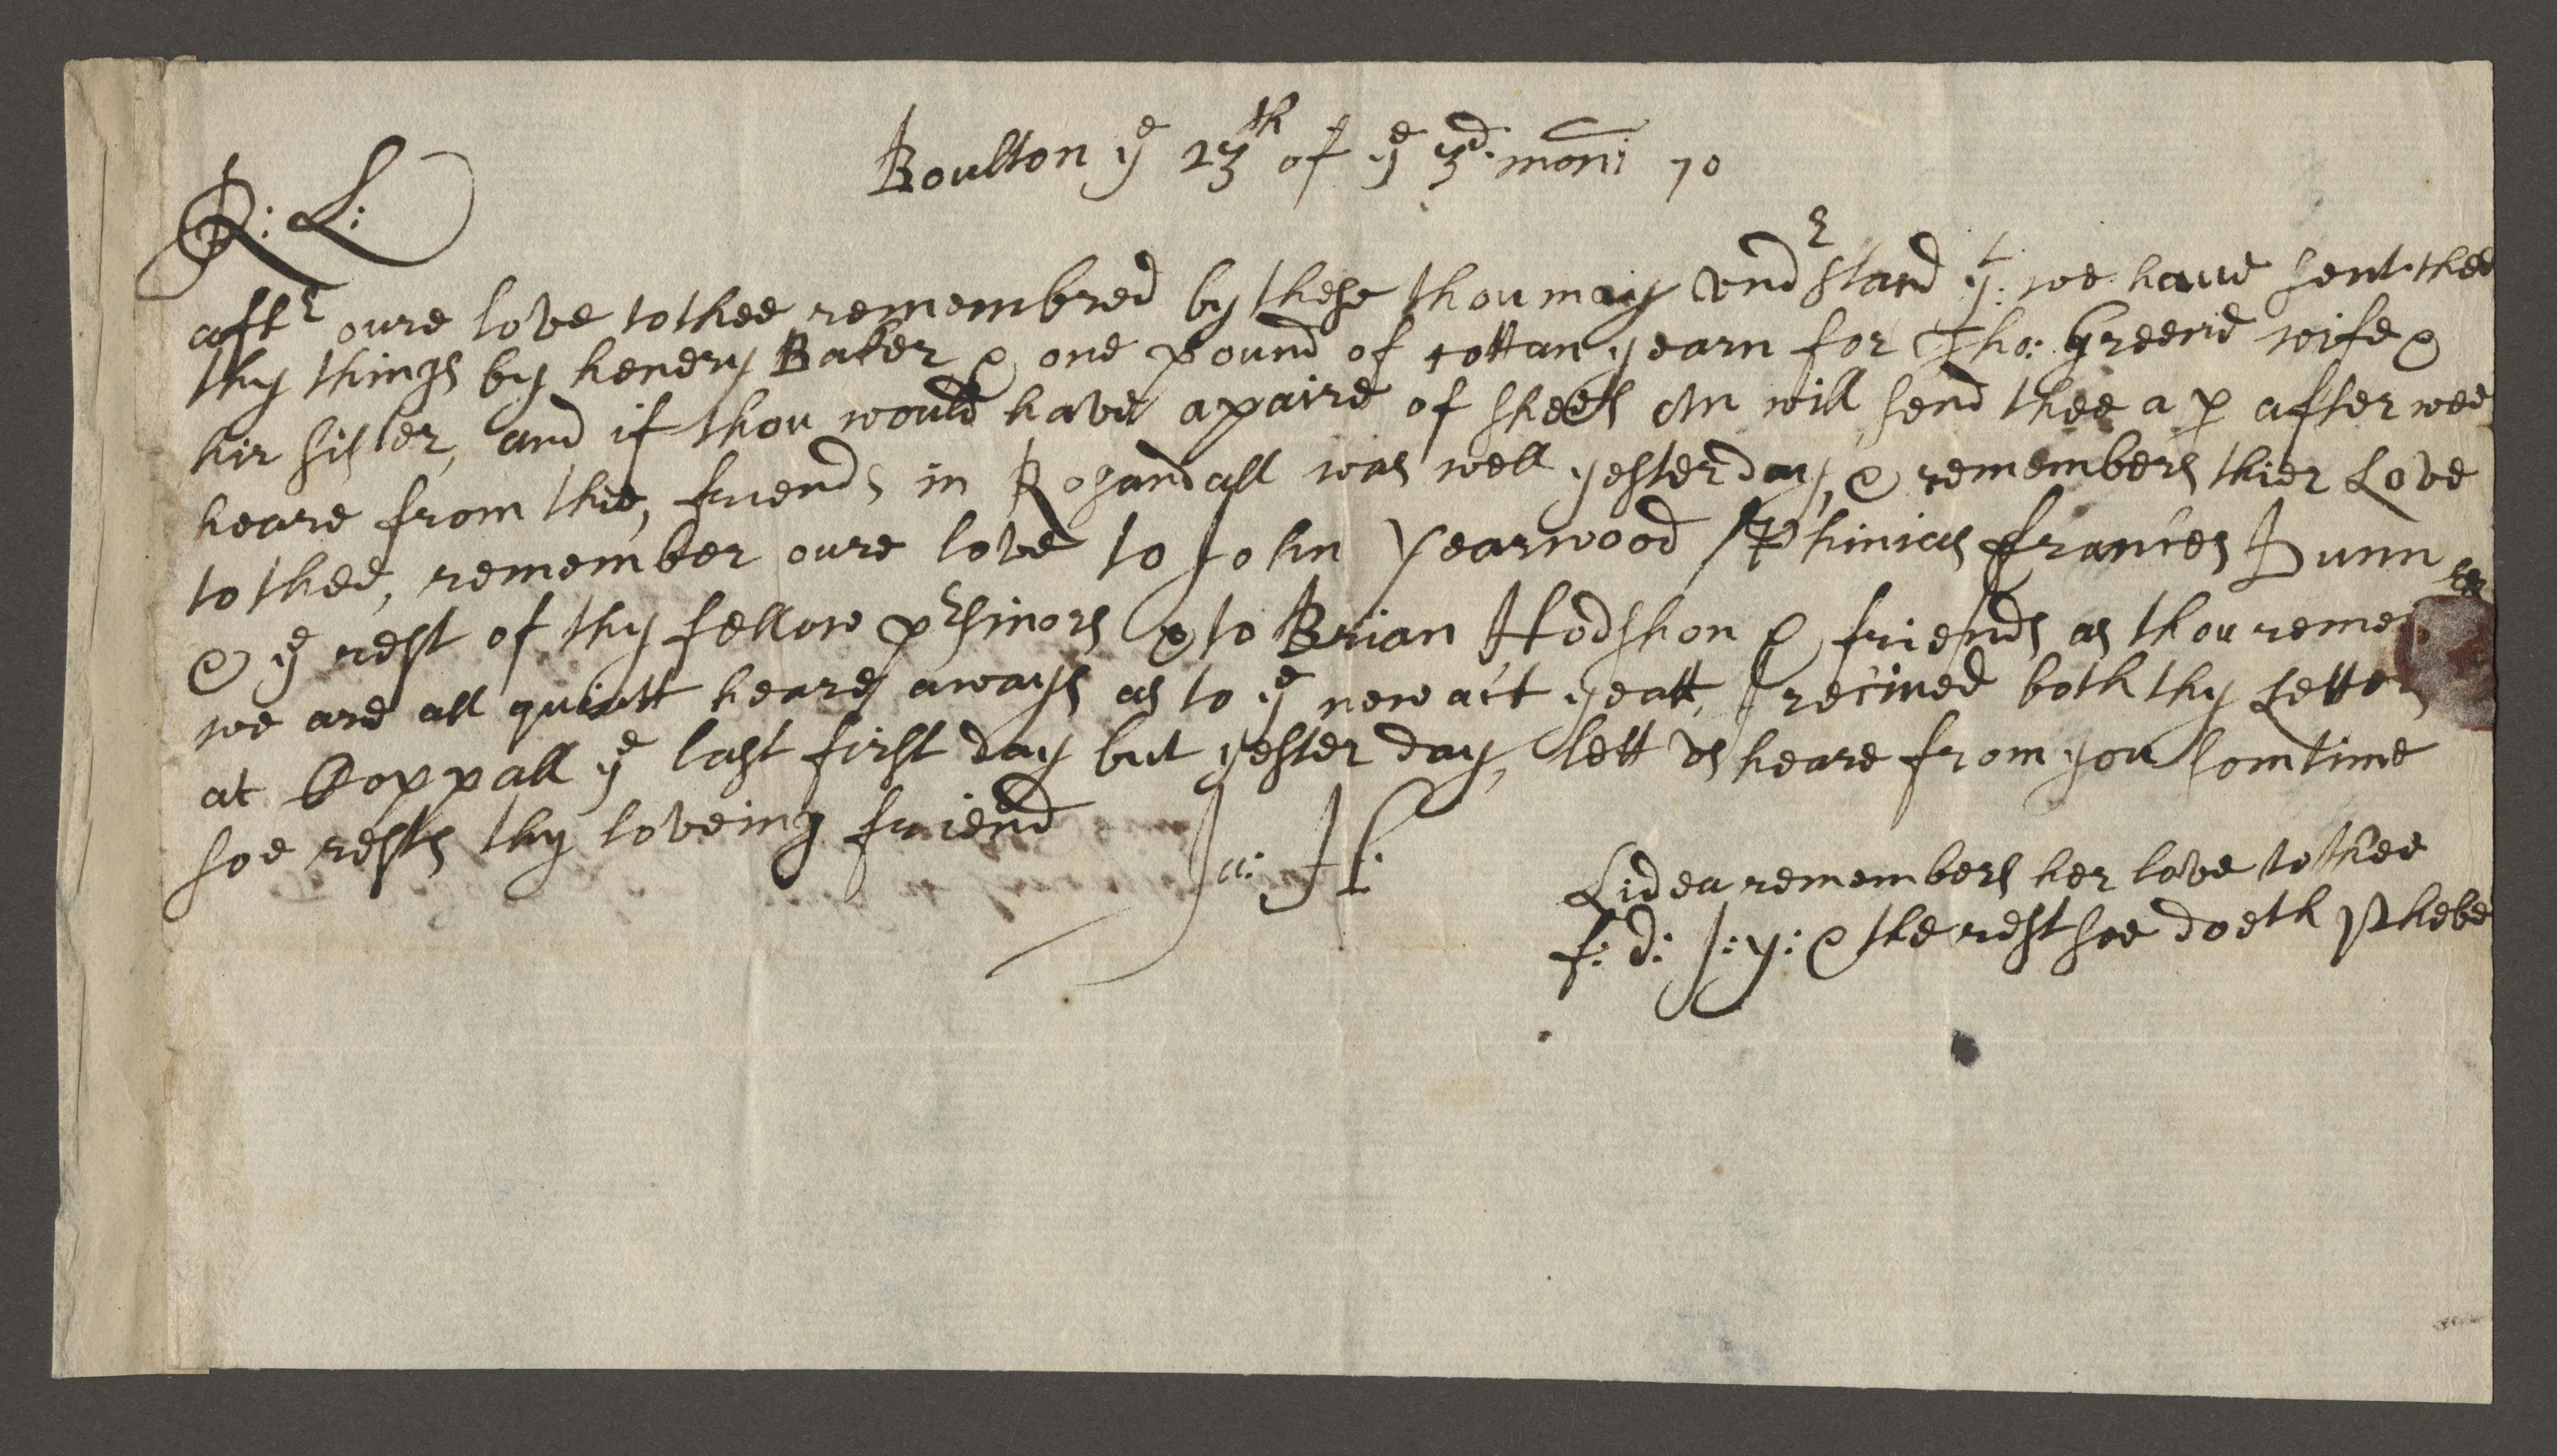 Boulton ye 23th of ye 3d. moni 70
R: L:
aftr oure love to thee remembred by these thou may vndrstand yt: we have sent thee
thy things by henery Baker & one pound of cottan yearn for Tho: Greene wife &
hir sister, and if thou would have a paire of sheets An will send thee a p after wee
heare from thee, friends in Rosandall was well yesterday, & remembers thier Love
to thee, remember oure love to John Yearwood Phinias frances Dunn
& ye rest of thy fellow prsinors & to Brian Hodshon & friends as thou reme
we are all quiett heare aways as to ye new act yeatt, I recived both thy Letters
at Coppall ye last first day but yester day, lett vs heare from you somtime
soe rests thy loveing friend
Ja: H:
Lidea remembers her love to thee
f: d: J: y: & the rest soe doeth Phebe